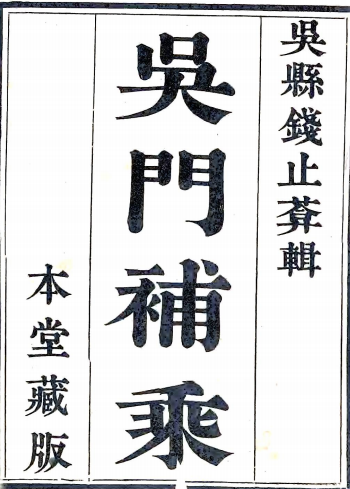 吳縣錢止菴輯
吳門補乘
本堂藏版